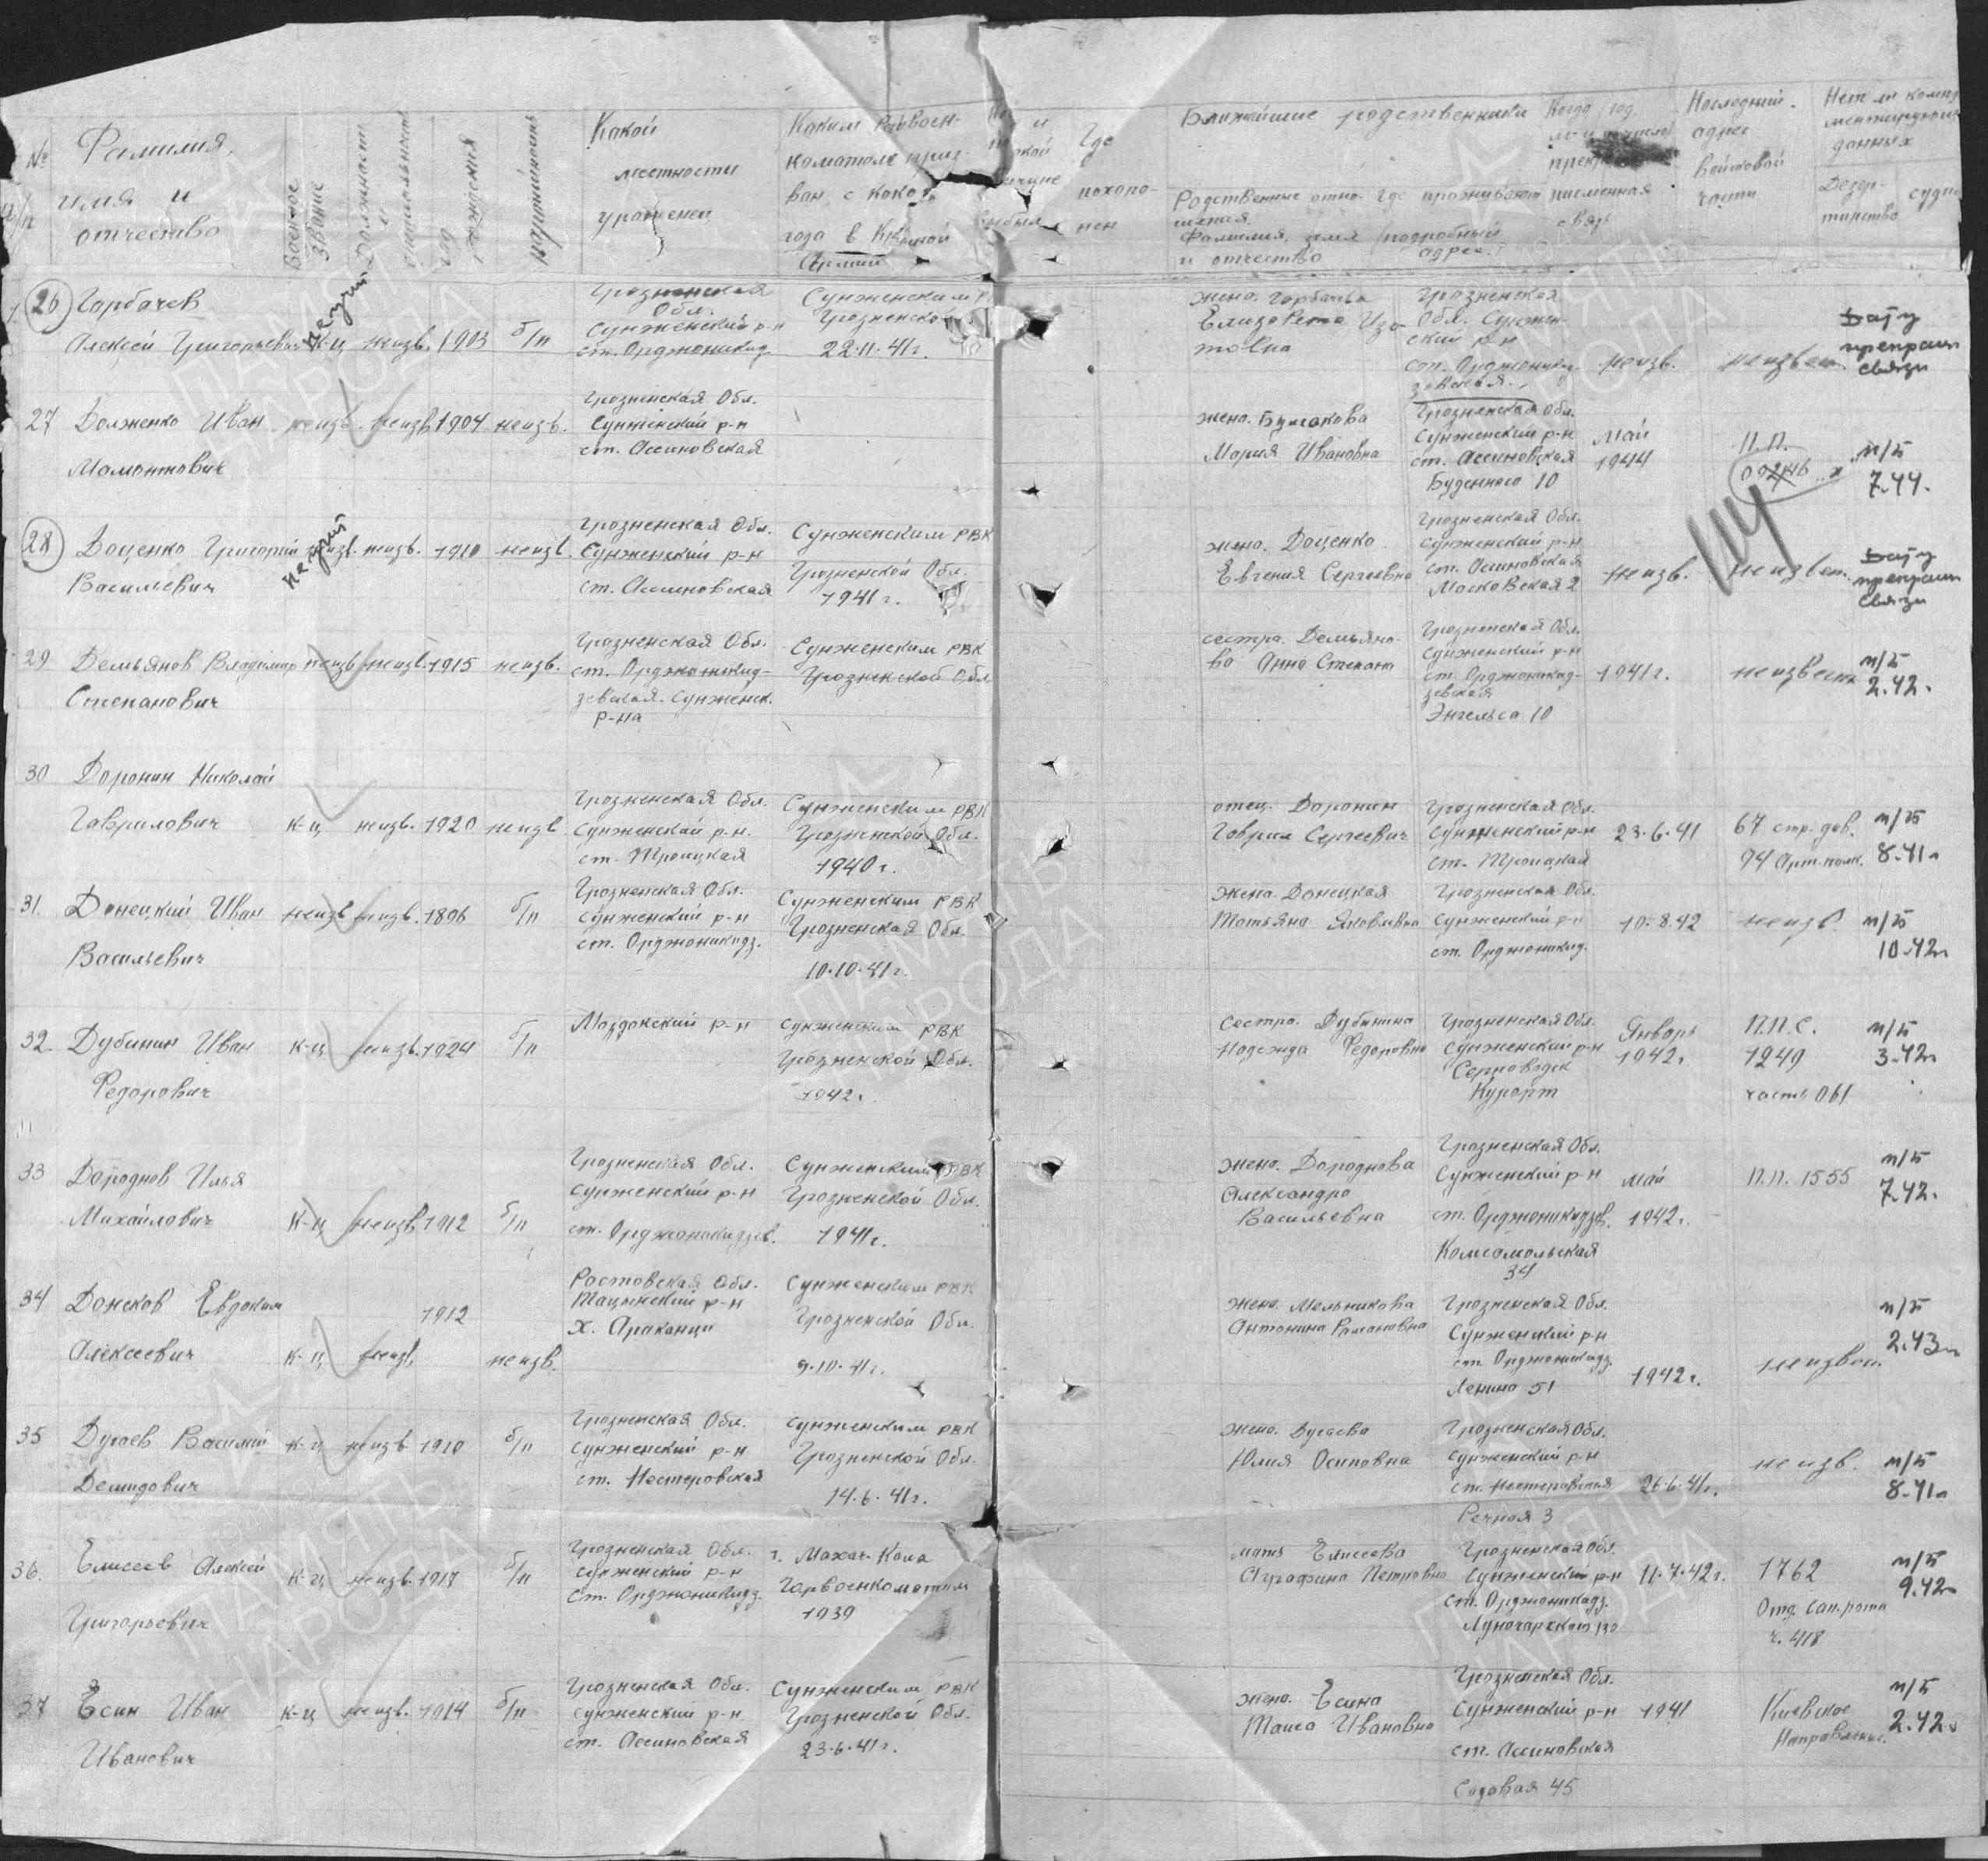 № п/п
Фамилия, имя и отчество
Военное звание
Должность и специальность
Год рождения
партийность
Какой местности уроженец
Каким Райвоен-
коматом приз-
ван, с какого
года в Красной
Армии
Где похоро-
нен
Ближайшие родственники
Родственные отно-
шения
Фамилия, имя
и отчество
Где проживают
подробный
адрес
письменная
связь
Последний
адрес
войсковой
части
данных
Дезер-
тирство
26 Горбачев
Алексей Григорьевич к-ц неизв. 1903 б/п
Грозненская Обл. Сунженский р-н ст. Орджоникид.
Сунженским
Грозненско
22.11.41г.
жена. Горбачева
Елизавета Изо-
товна
Грозненская
Обл. Сунжен-
ский р-н
ст. Орджоники-
зевская.
неизв.
неизвес.
Дату
прекращ
связи
27 Долженко Иван неизв. неизв. 1904 неизв.
Мамонтович
Грозненская Обл.
Сунженский р-н
ст. Ассиновская
жена.
Мария Ивановна
Грозненская Обл.
Сунженский р-н
ст. Ассиновская
Буденного 10
Май
1944
П.П.
п/б
7.44.
28 Доценко Григорий неизв. неизв. 1910 неизв.
Васильевич
Грозненская Обл.
Сунженский р-н
ст. Ассиновская
Сунженским РВК
Грозненской Обл.
1941г.
жена. Доценко
Евгения Сергеевна
Грозненская Обл.
Сунженский р-н
ст. Ассиновская
Московская 2
неизв.
неизвест.
Дату
прекращ
связи
29 Демьянов Владимир неизв. неизв. 1915 неизв.
Степанович
Грозненская Обл.
ст. Орджоникид-
зевская. Сунженск.
р-на
Сунженским РВК
Грозненской Обл
сестра. Демьяно-
ва Анна Степано
Грозненская Обл.
Сунженский р-н
ст. Орджоникид-
зевская
Энгельса 10
1941г.
неизвестн
п/б
2.42.
30 Доронин Николай
Гаврилович к-ц неизв. 1920 неизв
Грозненская Обл.
Сунженский р-н.
ст. Троицкая
Сунженским РВК
Грозненской Обл.
1940г.
отец. Доронин
Гаврил Сергеевич
Грозненская Обл.
Сунженский р-н
ст. Троицкая
23.6.41
67 стр. див.
94 Арт. полк.
п/б
8.41г
31. Донецкий Иван неизв неизв. 1896 б/п
Васильевич
Грозненская Обл.
Сунженский р-н
ст. Орджоникидз.
Сунженским РВК
Грозненская Обл.
10.10.41г.
Жена. Донецкая
Татьяна Яковлевна
Грозненская Обл.
Сунженский р-н
ст. Орджоникид.
10.8.42
неизв.
п/б
10.42г
32. Дубинин Иван к-ц неизв. 1924 б/п
Федорович
Моздокский р-н
Сунженским РВК
Грозненской Обл.
1942г.
Сестра. Дубинина
Надежда Федоровна
Грозненская Обл.
Сунженский р-н
Серноводск
Курорт
Январь
1942г.
П.П.С.
1249
часть 061
п/б
3.42г
33 Дороднов Илья
Михайлович к-ц неизв 1912 б/п
Грозненская Обл.
Сунженский р-н
ст. Орджоникидзев.
Сунженским РВК
Грозненской Обл.
1941г.
жена. Дороднова
Александра
Васильевна
Грозненская Обл.
Сунженский р-н
ст. Орджоникидзев.
Комсомольская
34
май
1942г.
П.П. 1555
п/б
7.42.
34 Донсков Евдоким 1912
Алексеевич к-ц неизв. неизв.
Ростовская Обл.
Тацинский р-н
х. Араканци
Сунженским РВК
Грозненской Обл.
9.10.41г.
жена. Мельникова
Антонина Романовна
Грозненская Обл.
Сунженский р-н
ст. Орджоникидз.
Ленина 51
1942г.
неизвест.
п/б
2.43г
35 Дугаев Василий к-ц неизв 1910 б/п
Демидович
Грозненская Обл.
Сунженский р-н
ст. Нестеровская
Сунженским РВК
Грозненской Обл.
14.6.41г.
жена. Дугаева
Юлия Осиповна
Грозненская Обл.
Сунженский р-н
ст. Нестеровская
Речная 3
26.6.41г.
неизв.
п/б
8.41г
36. Елисеев Алексей к-ц неизв. 1917 б/п
Григорьевич
Грозненская Обл.
Сунженский р-н
ст. Орджоникидз.
г. Махач-Кала
Горвоенкоматом
1939
мать Елисеева
Аграфина Петровна
Грозненская Обл.
Сунженский р-н
ст. Орджоникидз.
Луночарского 130
11.7.42г.
1762
Отд. сан. рота
ч. 418
п/б
9.42г
37 Есин Иван к-ц неизв. 1914 б/п
Иванович
Грозненская Обл.
Сунженский р-н
ст. Ассиновская
Сунженским РВК
Грозненской Обл.
23.6.41г.
жена. Есина
Таиса Ивановна
Грозненская Обл.
Сунженский р-н
ст. Ассиновская
Садовая 45
1941
Киевское
Направление.
п/б
2.42г